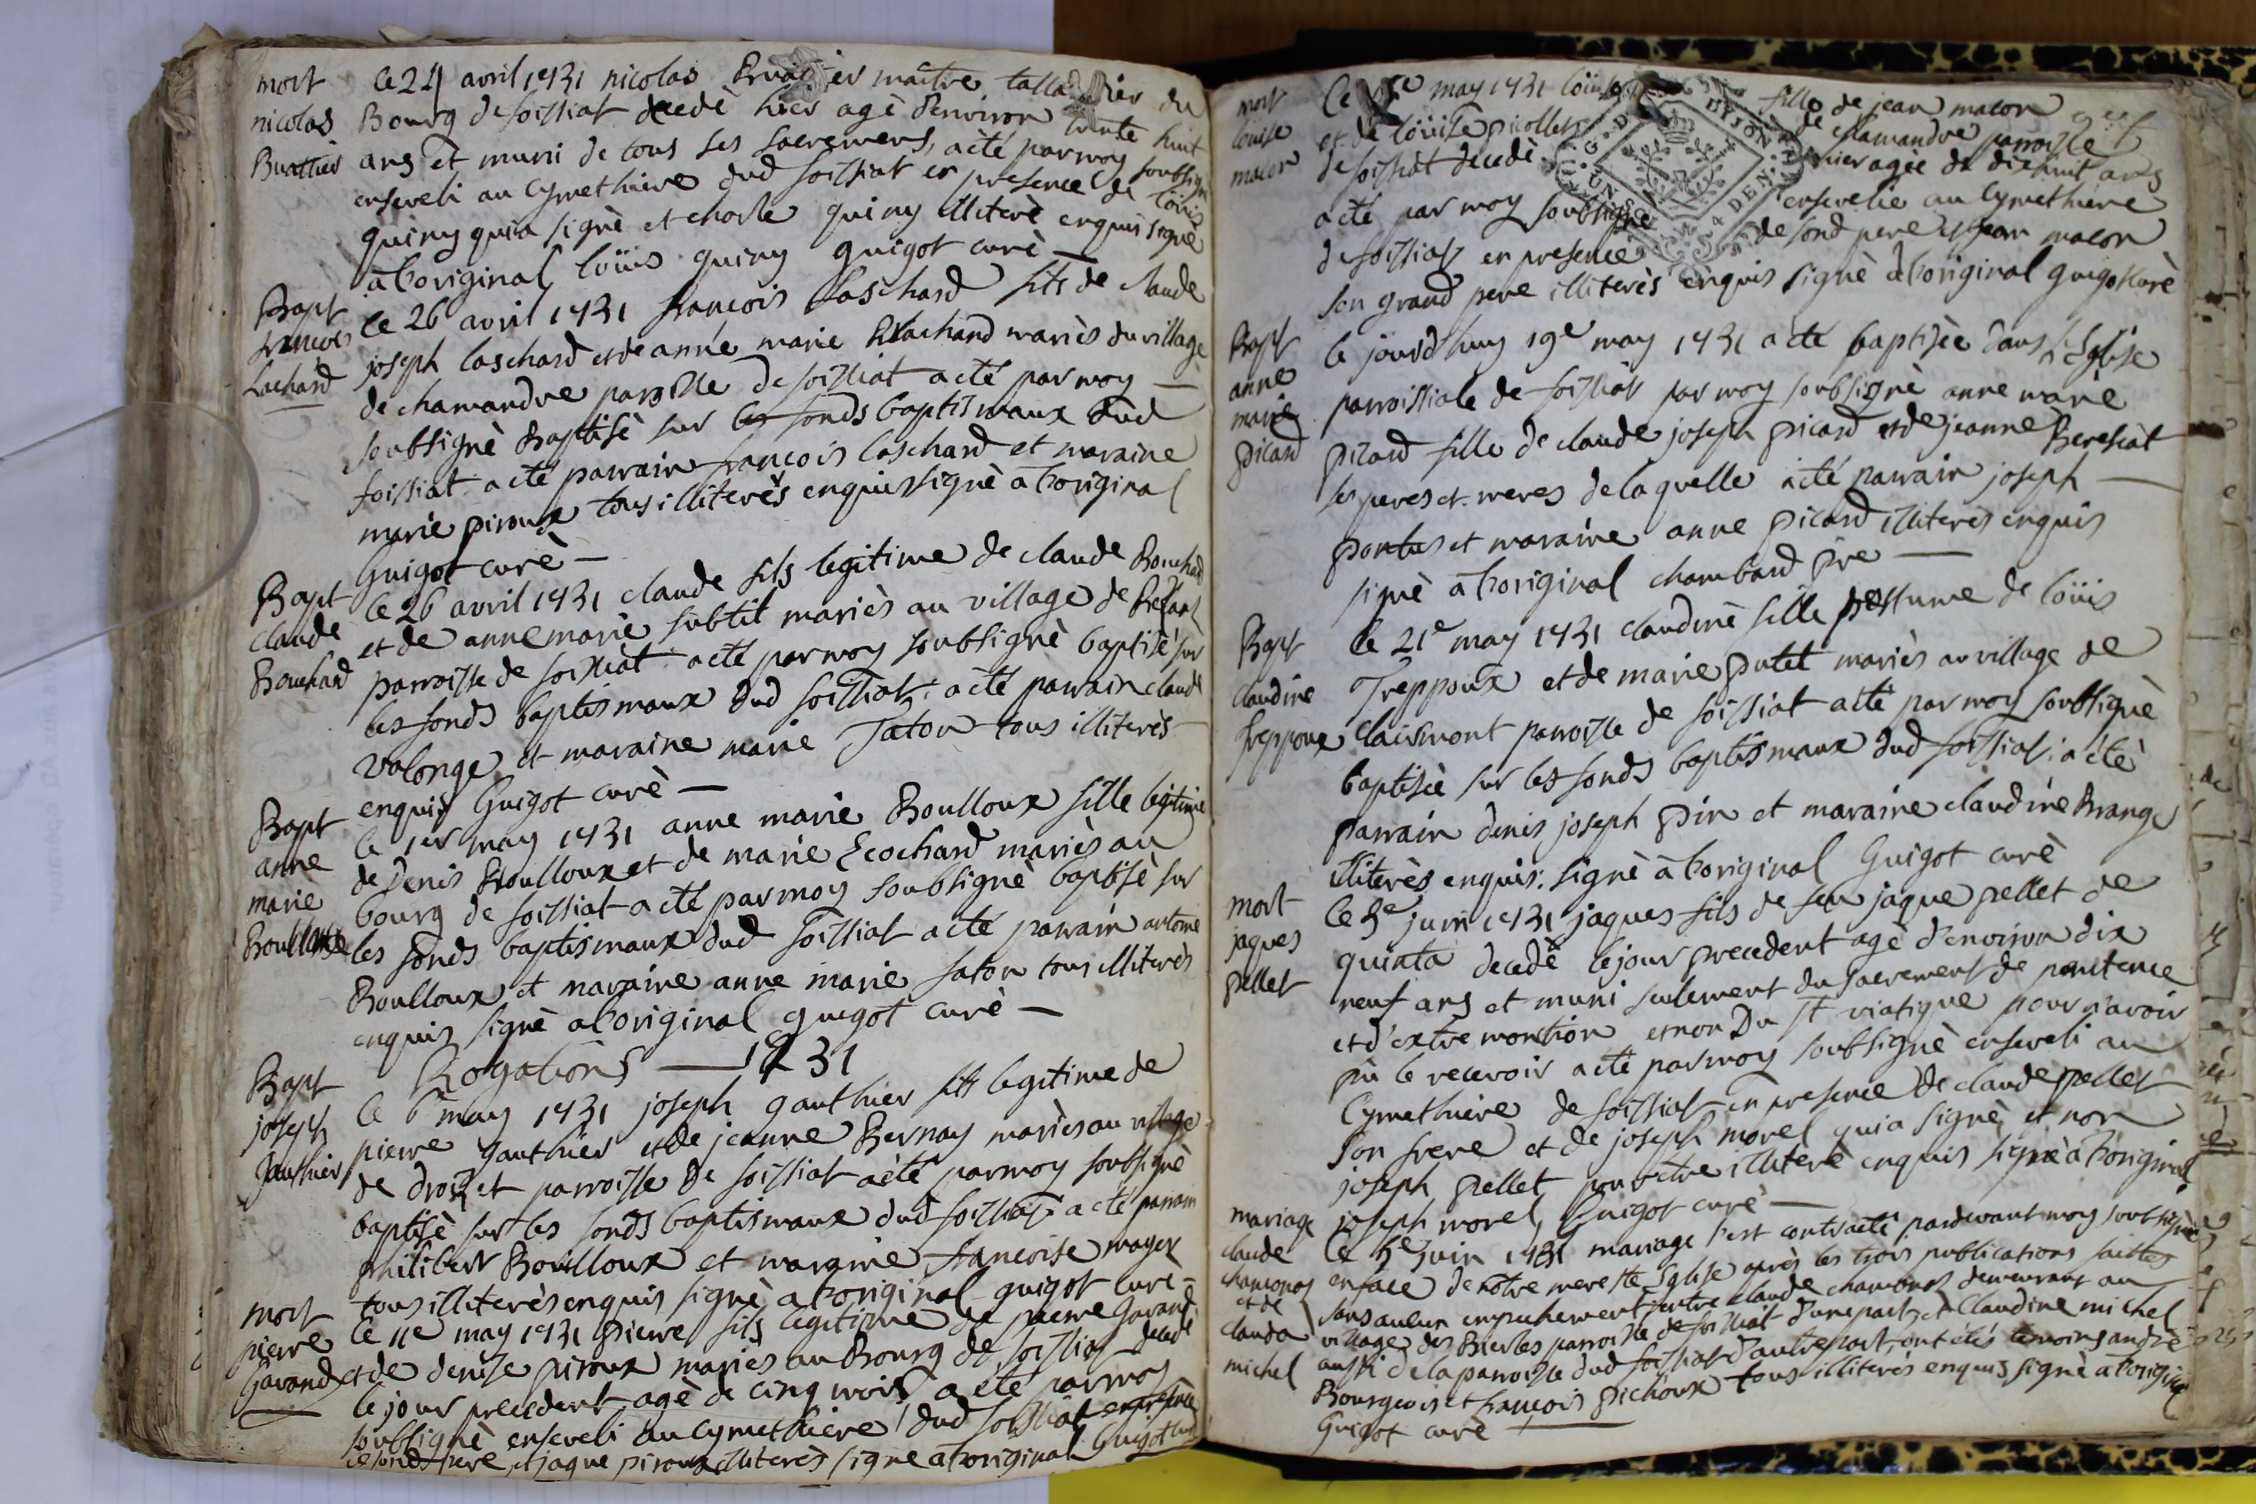 mort
nicolas
Buathier
le 24 avril 1731 nicolas maitre du
Bourg de foissiat decedè hier agè denviron trente huit
ans et muni de tous ses sacremens, acté par moy soubsigné
enseveli au Cymethiere dud foissiat en presence de loüis
quiny qui a signè et charle quiny illiterè enquis signè
a l'original loüis quiny guigot curè —
Bapt
francois
Lachard
le 26 avril 1731 francois laschard fils de claude
joseph laschard et de anne marie mariès du village
de chamandre paroisse de foissiat acté par moy —
soubsignè Baptisè sur les fonds baptismaux dud
foissiat acté parrain francois laschard et maraine
marie piroux tous illiterès enquis signè a l'original
Guigot curè —
Bapt
claude
Bouchard
le 26 avril 1731 claude fils legitime de claude Bouchard
et de anne marie subtil mariès au village de
parroisse de foissiat acté par moy soubsignè baptisè sur
les fonds baptismaux dud foissiat, acté parrain claude
valonge et maraine marie Jaton tous illiterès
enquis Guigot curè —
Bapt
anne
marie
Boulloux
le 1er may 1731 anne marie Boulloux fille legitime
de Denis Boulloux et de marie Ecochard mariès au
bourg de foissiat acté par moy soubsignè baptisè sur
les fonds baptismaux dud foissiat acté parrain antoine
Boulloux et maraine anne marie Jaton tous illiterès
enquis signè a l'original guigot curè —
Rogations — 1731
Bapt
joseph
Gauthier
le 6 may 1731 joseph gauthier fils legitime de
pierre gauthier et de jeanne Bernay mariès au village
de et parroisse de foissiat acté par moy soubsignè
baptisè sur les fonds baptismaux dud foissiat acté parrain
philibert Boulloux et maraine francoise
tous illiterès enquis signè a l'original guigot curè —
mort
pierre
Gavand
le 11e may 1731 pierre fils legitime de pierre Gavand
et de denise piroux mariès au Bourg de foissiat decedè
le jour precedent agè de cinq mois a été par moy
soubsignè enseveli au Cymethiere dud foissiat en presence
de sond pere et jaque piroux illiterès signè a l'original Guigot curè
mort
loüise
macon
Ce may 1731 loüise fille de jean macon
et de loüise picollet de chamandre parroisse
de foissiat decedè hier agée de dixhuit ans
a été par moy soubsignè ensevelie au Cymethiere
de foissiat en presence de sond pere et jean macon
son grand pere illiterès enquis signè a l'original guigot curè
Bapt
anne
marie
picard
le jourdhuy 19e may 1731 a été baptisèe dans l'Eglise
parroissiale de foissiat par moy soubsignè anne marie
picard fille de claude joseph picard et de jeanne Beressiat
ses peres et meres de laquelle acté parrain joseph —
pontus et maraine anne picard illiterès enquis
signè a l'original chambard pre —
Bapt
claudine
Treppoux
le 21e may 1731 claudine fille postume de loüis
Treppoux et de marie putet mariès au village de
clairmont parroisse de foissiat acté par moy soubsignè
baptisèe sur les fonds baptismaux dud foissiat; a été
parrain denis joseph pin et maraine claudine Brange
illiterès enquis: signè a l'original Guigot curè
mort
jaques
pellet
le 3e juin 1731 jaques fils de feu jaque pellet de
quinta decedè le jour precedent agè d'environ dix
neuf ans et muni seulement du sacrement de penitence
et d'extre monction et non du st viatique pour n'avoir
pû le recevoir acté par moy soubsignè enseveli au
Cymethiere de foissiat en presence de claude pellet
son frere et de joseph morel qui a signè et non
joseph pellet pour etre illiterè enquis signè a l'original
joseph morel Guigot curè —
mariage
claude
chamonos
et de
clauda
michel
le 5e juin 1731 mariage s'est contracté pardevant moy soubsigne
en face de notre mere ste Eglise après les trois publications faittes
sans aucun empechement entre claude chamonos demeurant au
village des Bierles parroisse de foissiat d'une part, et Claudine michel
aussi de la parroisse dud foissiat d'autre part, ont étés temoins andrè
Bourgeois et françois pichoux tous illiterès enquis signè a l'original
Guigot curè —